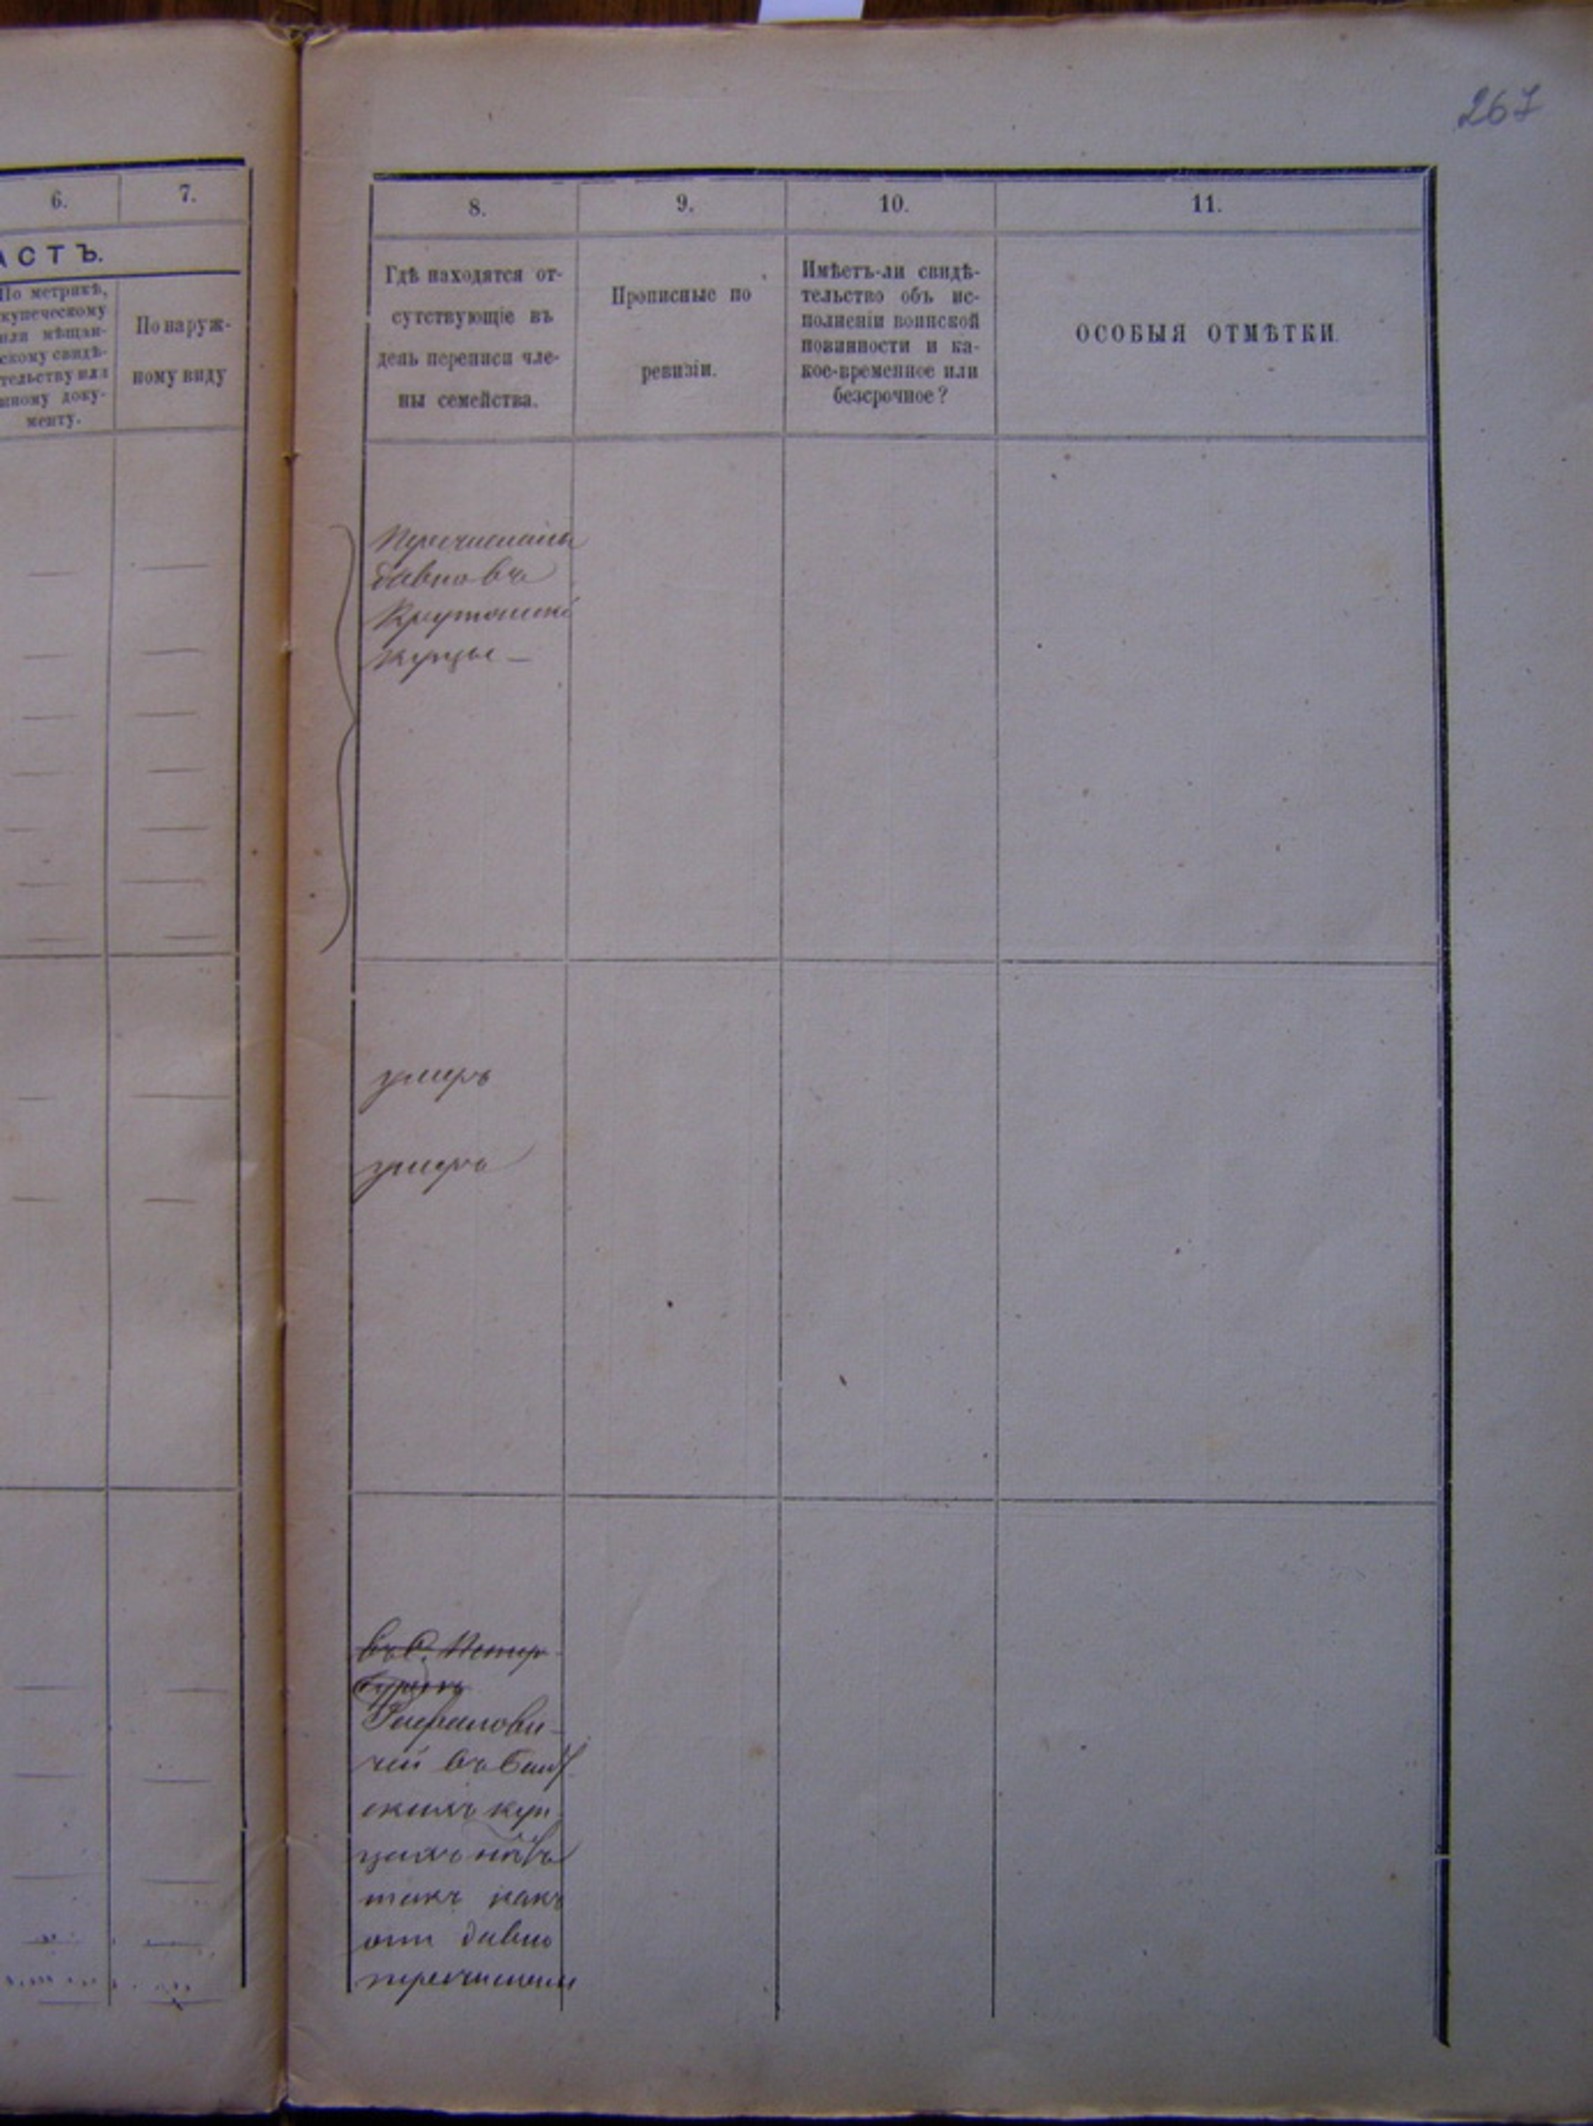 267
6.
7.
АСТЪ.
По метрикѣ,
купеческому
или мѣщан-
скому свидѣ-
тельству или
иному доку-
менту.
По наруж-
ному виду
8.
9.
10.
11.
Гдѣ находятся от-
сутствующіе въ
день переписи чле-
ны семейства.
Прописные по
ревизіи.
Имѣетъ-ли свидѣ-
тельство объ ис-
полненіи воинской
повинности и ка-
кое-временное или
безсрочное?
ОСОБЫЯ ОТМѢТКИ.
Перечислены
давно въ
купцы —
умеръ
умеръ
въ С. Петер-
бургѣ
Рафалови-
чей въ
скихъ куп-
цахъ
такъ какъ
они давно
перечислены